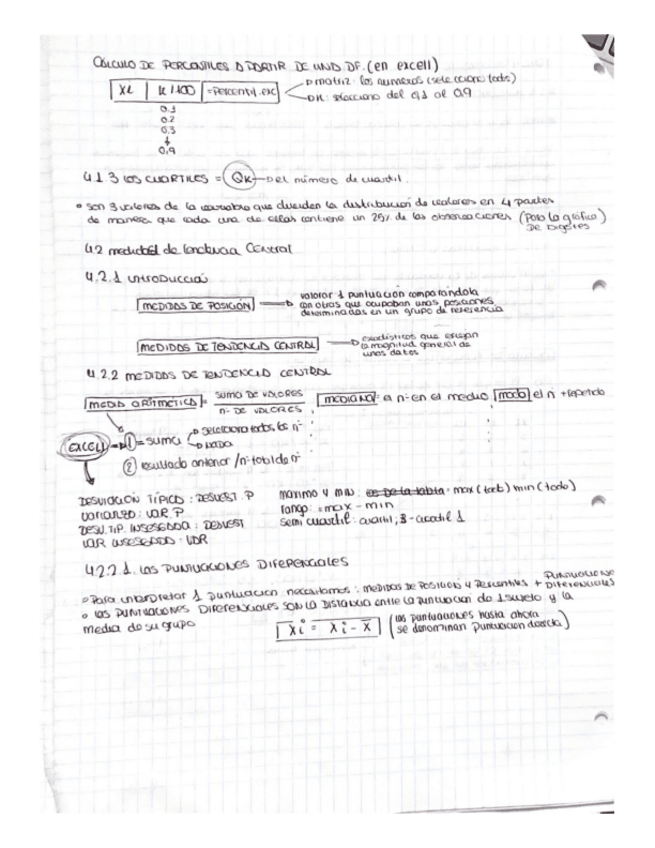 CÁLCULO DE PERCENTILES A PARTIR DE UNA DF. (en excell)
XL | K/100 | =Percentil.exc → matriz: los numeros (selecciono todo)
→ K: selecciono del 0,1 al 0,9
0.1
0.2
0.3
↓
0,9
4.1.3 LOS CUARTILES = QK → el número de cuartil.
• Son 3 valores de la variable que dividen la distribución de valores en 4 partes
de manera que cada una de ellas contiene un 25% de las observaciones (Para la gráfica)
4.2 medidas de tendencia Central
4.2.1 introducción
MEDIDAS DE POSICIÓN → valorar 1 puntuación comparándola
con otras que ocupaban unas posiciones
determinadas en un grupo de referencia
MEDIDAS DE TENDENCIA CENTRAL → estadísticos que
la magnitud general de
unos datos
4.2.2 MEDIDAS DE TENDENCIA CENTRAL
MEDIA ARITMÉTICA = SUMA DE VALORES / nº DE VALORES, MEDIANA = a nº en el medio, moda el nº + repetido
EXCELL → ① = suma → selecciona todos los nº
→ NADA
② resultado anterior / nº total de nº
DESVIACIÓN TÍPICA: DESVEST. P
VARIANZA: VAR. P
DESV. TIP. INSESGADA: DESVEST
VAR INSESGADA: VAR
maximo y min: max (todo) min (todo)
rango: =max - min
semi cuartil: cuartil, 3 - cuartil 1
4.2.2.1. LAS PUNTUACIONES DIFERENCIALES
• Para interpretar 1 puntuación necesitamos: medidas de Posición y Percentiles + PUNTUACIONES DIFERENCIALES
• LAS PUNTUACIONES DIFERENCIALES SON LA DISTANCIA entre la puntuación de 1 sujeto y la
media de su grupo
xi = Xi - X (las puntuaciones hasta ahora
se denominan puntuación directa)